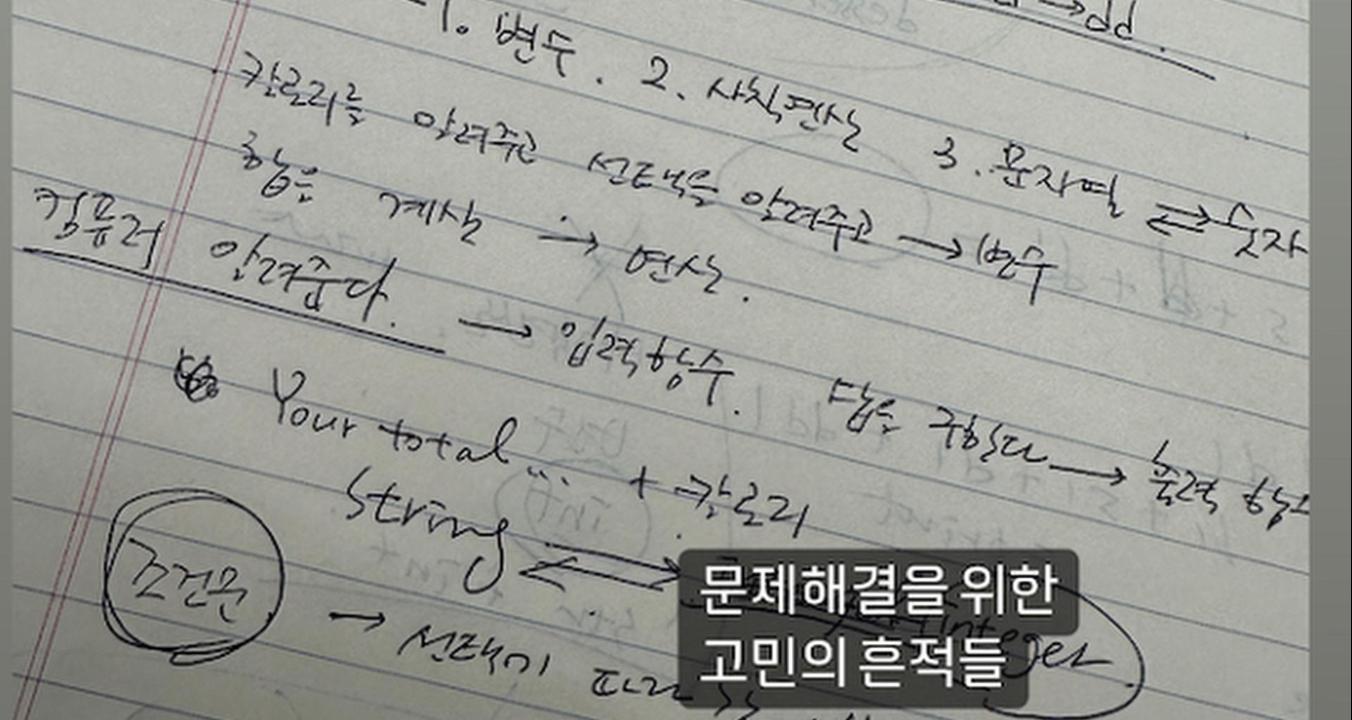 →dd.
1. 변수. 2. 사칙연산 3. 문자열 ⇌ 숫자
칼로리를 알려주고 선택을 알려주고 → 변수
합을 계산 → 연산.
컴퓨터 알려준다. → 입력함수. 답을 구한다 → 출력 함수
Your total ... + 칼로리
String ⇌ integer
조건문 → 선택기 따라
문제해결을 위한
고민의 흔적들